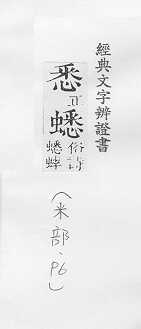 經典文字辨證書
悉
正
蟋
俗詩
蟋蟀
(米部.P6)